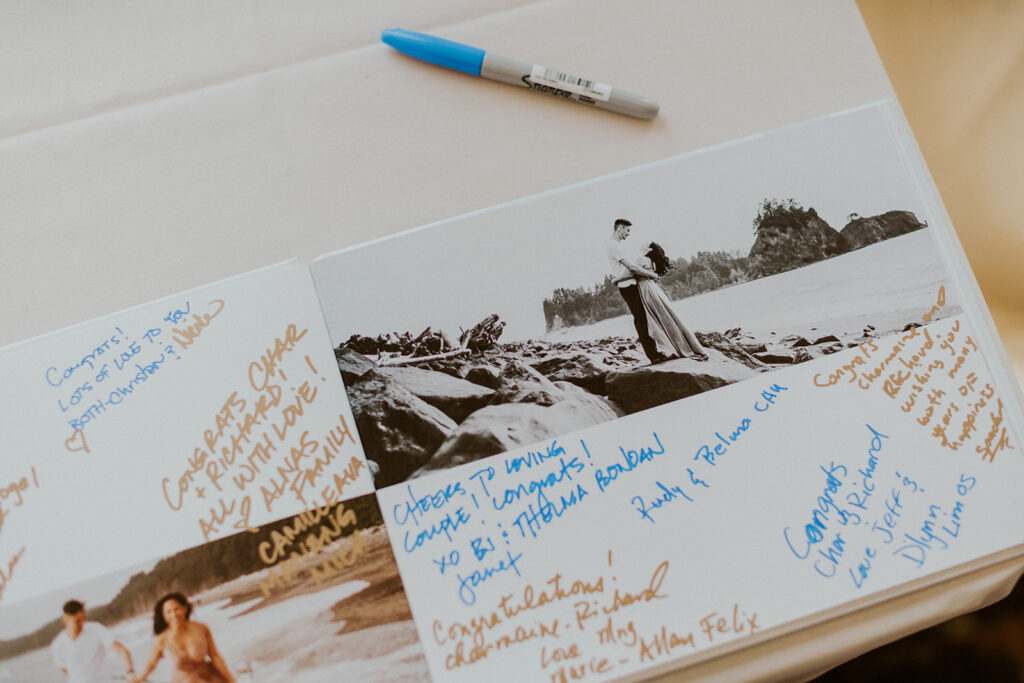 Sharpie
Congrats!
LOTS OF LOVE TO YOU
BOTH - Christian & Nicole
CONGRATS CHAR
+ RICHARD!
ALL WITH LOVE!
♡ ALNAS
FAMILY
CAMILLE AVA
MANANG
MICA
CHEERS TO LOVING
COUPLE! Congrats!
XO BJ : THELMA BONDAN
Janet
Rudy & Belma CAU
Congratulations!
Charmaine - Richard
Love Mng
Marie - Allan Felix
Congrats
Charmaine and
Richard.
wishing you
worth many
years of
happiness
Congrats
Char & Richard
Love Jeff &
Dlynn
Limos